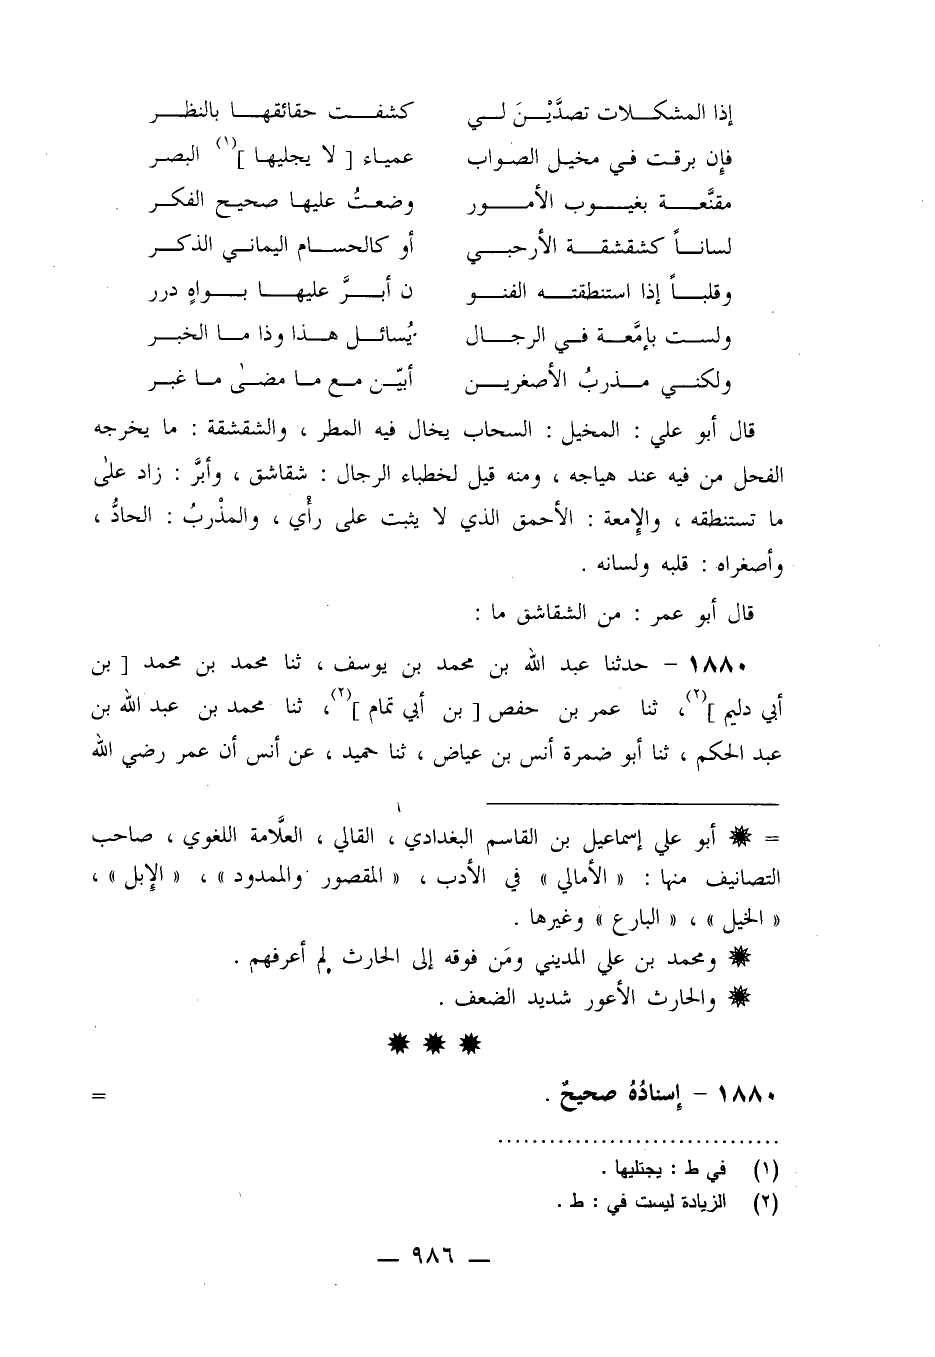 إذا المشكلات تصدَّيْنَ لي كشفت حقائقها بالنظر
فإن برقت في مخيل الصواب عمياء [ لا يجليها ](١) البصر
مقنَّعة بغيوب الأمور وضعتُ عليها صحيح الفكر
لساناً كشقشقة الأرحبي أو كالحسام اليماني الذكر
وقلباً إذا استنطقته الفنو ن أبرَّ عليها بواهٍ درر
ولست بإمَّعة في الرجال يُسائل هذا وذا ما الخبر
ولكني مذربُ الأصغرين أبيّن مع ما مضىٰ ما غبر
قال أبو علي : المخيل : السحاب يخال فيه المطر ، والشقشقة : ما يخرجه
الفحل من فيه عند هياجه ، ومنه قيل لخطباء الرجال : شقاشق ، وأبرَّ : زاد علىٰ
ما تستنطقه ، والإمعة : الأحمق الذي لا يثبت على رأْي ، والمذْربُ : الحادُّ ،
وأصغراه : قلبه ولسانه .
قال أبو عمر : من الشقاشق ما :
١٨٨٠ - حدثنا عبد الله بن محمد بن يوسف ، ثنا محمد بن محمد [ بن
أبي دليم ](٢)، ثنا عمر بن حفص [ بن أبي تمام ](٢)، ثنا محمد بن عبد الله بن
عبد الحكم ، ثنا أبو ضمرة أنس بن عياض ، ثنا حميد ، عن أنس أن عمر رضي الله
= ✹ أبو علي إسماعيل بن القاسم البغدادي ، القالي ، العلَّامة اللغوي ، صاحب
التصانيف منها : « الأمالي » في الأدب ، « المقصور والممدود » ، « الإبل » ،
« الخيل » ، « البارع » وغيرها .
✹ ومحمد بن علي المديني ومَن فوقه إلى الحارث لم أعرفهم .
✹ والحارث الأعور شديد الضعف .
✹ ✹ ✹
١٨٨٠ - إسنادُهُ صحيحٌ . =
(١) في ط : يجتليها .
(٢) الزيادة ليست في : ط .
— ٩٨٦ —